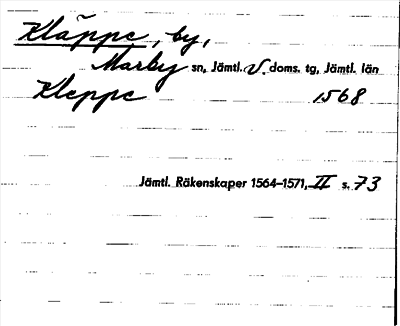 Kläppe, by,
Marby sn, Jämtl. V. doms. tg, Jämtl. län
Kleppe 1568
Jämtl. Räkenskaper 1564–1571, II s. 73